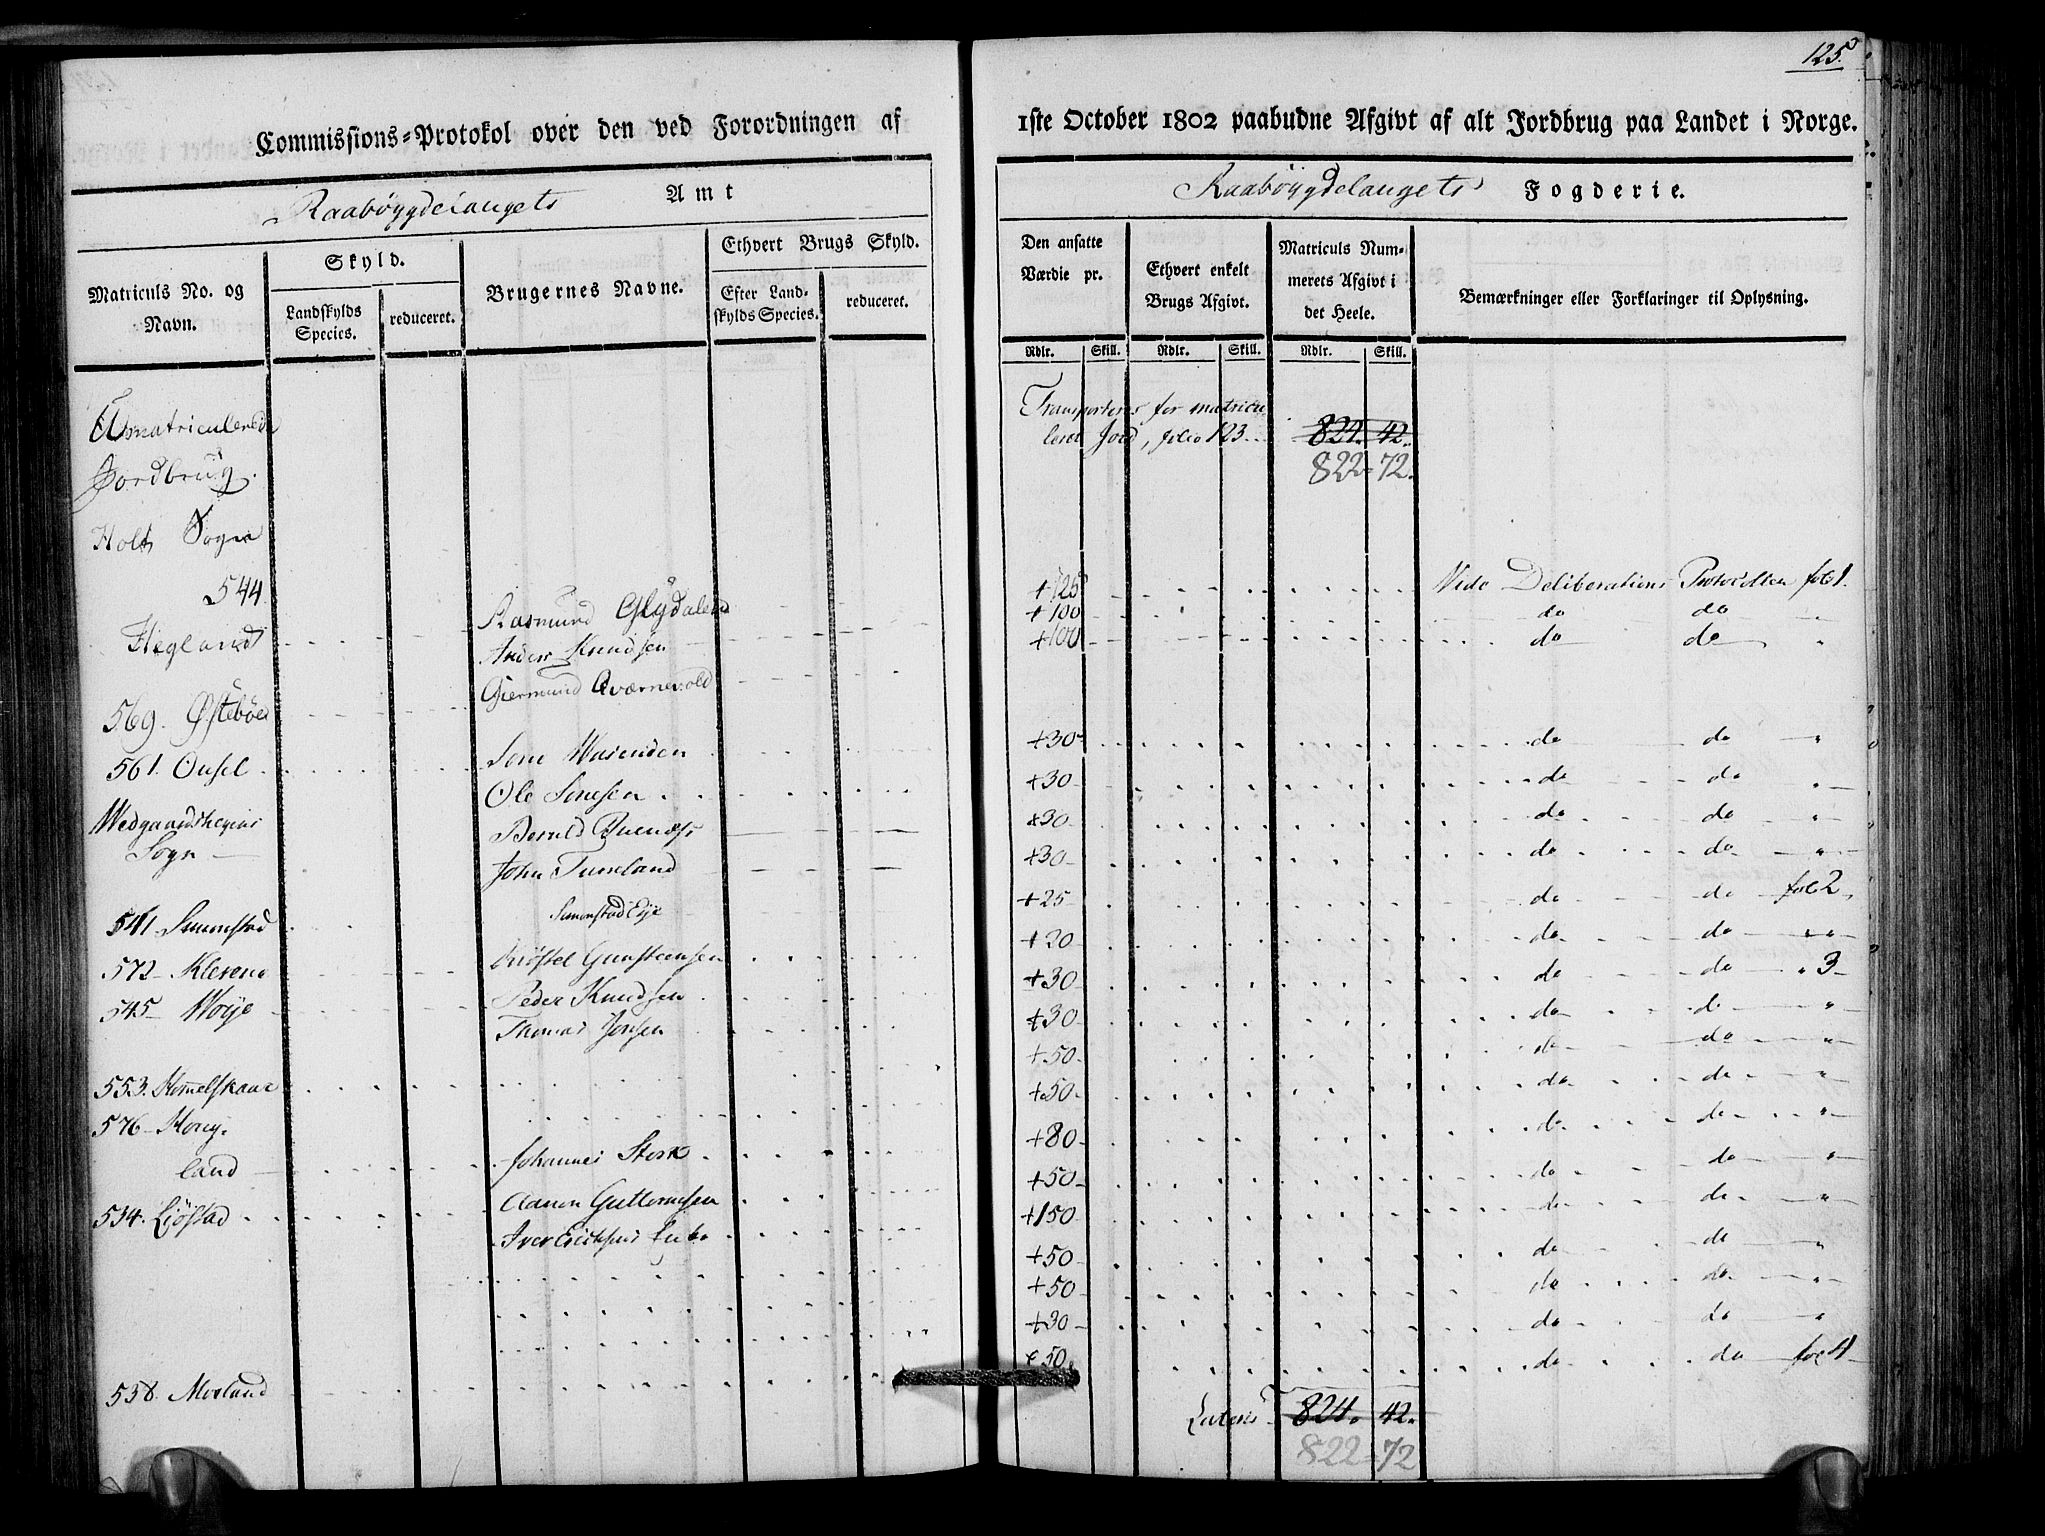 125.
Commissions=Protokol over den ved Forordningen af
1ste October 1802 paabudne Afgivt af alt Jordbrug paa Landet i Norge.
Raabøygdelaugets Amt
Raabøygdelaugets Fogderie.
Matriculs No. og Navn.
Skyld.
Landskylds Species.
reduceret.
Brugernes Navne.
Ethvert Brugs Skyld.
Efter Landskylds Species.
reduceret.
Den ansatte Værdie pr.
Ethvert enkelt Brugs Afgivt.
Matriculs Nummerets Afgivt i det Heele.
Bemærkninger eller Forklaringer til Oplysning.
Rdlr. Skill. Rdlr. Skill. Rdlr. Skill.
Umatriculerede
Jordbrug.
Transporteres for matricu
leret Jord, folio 123. 824. 42.
822=72.
Holt Sogn
544
Hegland
Rasmund Glydaland
Anders Knudsen
Giermund Qværnevold
+125 Vide Deliberations Protocollen fol 1.
+100 do do "
+100 do do "
569. Østebøe
561. Ousel
Sone
Ole Sonesen
+30 do do "
+30 do do "
Wedgaardsheyens
Sogn
John Tuseland
Simonstad Eye
+30 do do "
+30 do do "
+25 do do fol 2
541 Simonstad
572 Klevene
545 Woje
Gunsteensen
Peder Knudsen
Thomas Jonsen
+20 do do "
+30 do do " 3
+30 do do "
+50 do do "
553. Hommelskaar
576
land
534. Liøstad
Johannes Stork
Aanon Guttormsen
Iver
+50 do do "
+80 do do "
+50 do do "
+150 do do "
+50 do do "
+50 do do "
+30 do do "
538. Morland
+50 do do fol 4
Lateris 824. 42.
822=72